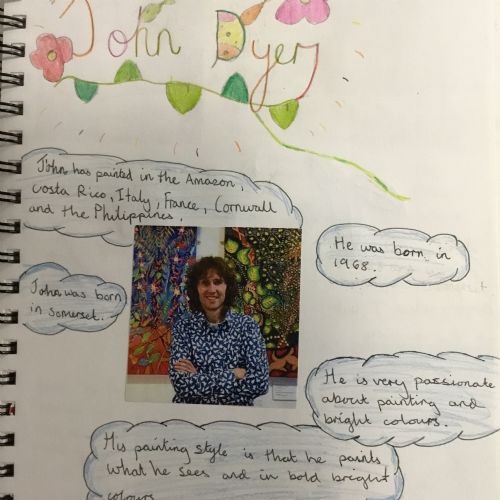 John Dyer
John has painted in the Amazon,
Costa Rico, Italy, France, Cornwall
and the Philippines.
He was born in
1968.
John was born
in Somerset.
He is very passionate
about painting and
bright colours.
His painting style is that he paints
what he sees and in bold bright
colours